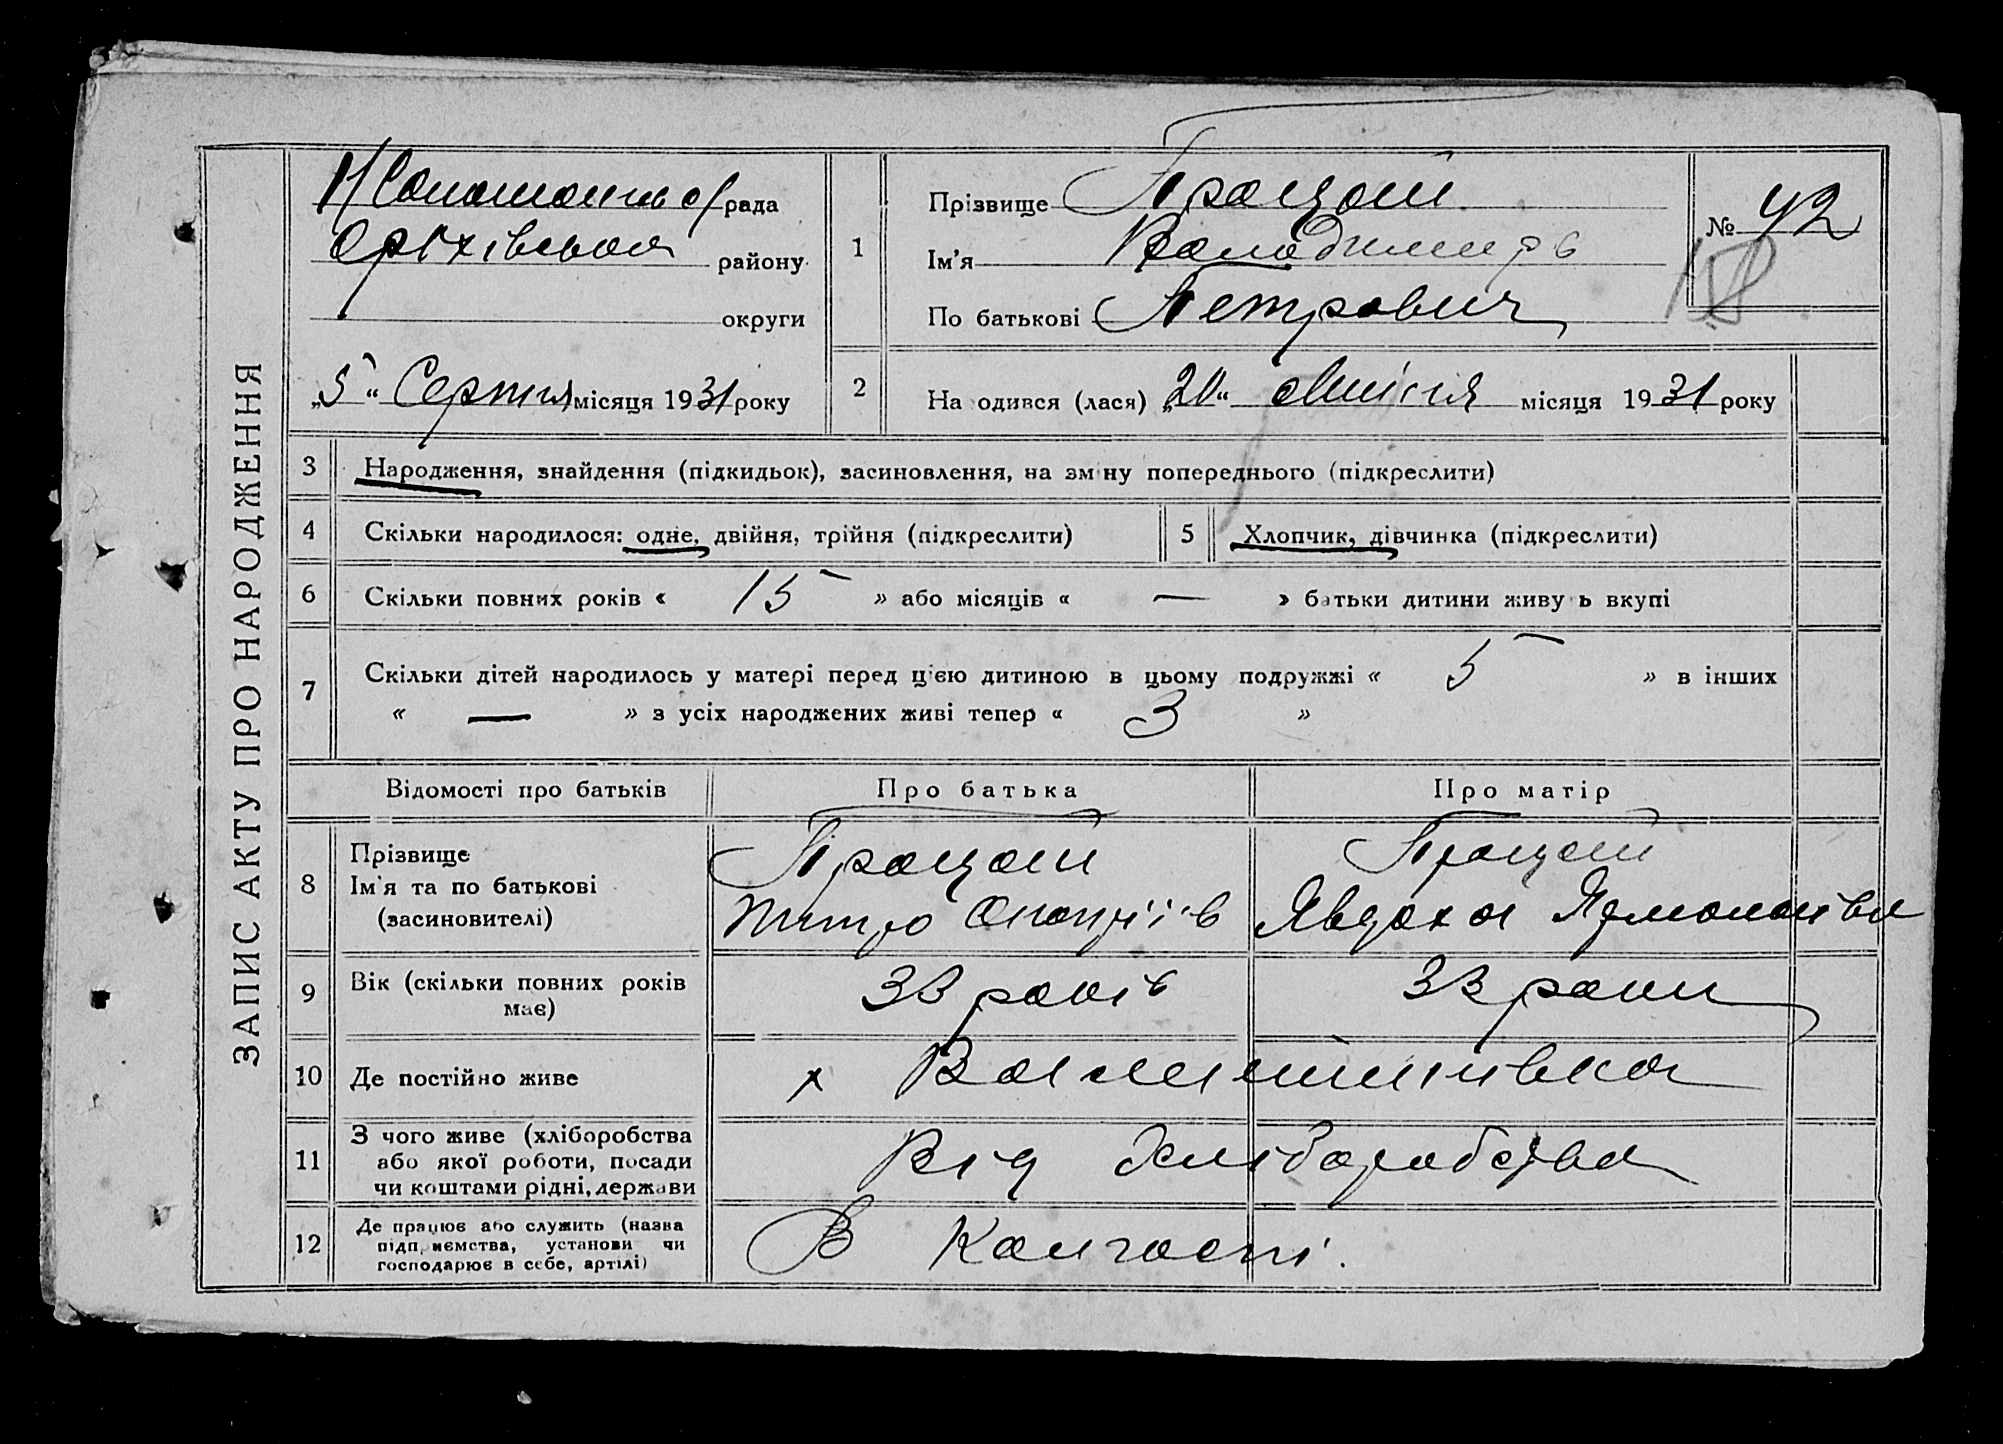 ЗАПИС АКТУ ПРО НАРОДЖЕННЯ
рада
Оріхівська району
округи
„5“ Серпня місяця 1931 року
1
Прізвище Процай
Ім'я Володимирь
По батькові Петрович
№ 42
2
На одився (лася) „20“ Липня місяця 1931 року
3 Народження, знайдення (підкидьок), засиновлення, на зм ну попереднього (підкреслити)
4 Скільки народилося: одне, двійня, трійня (підкреслити)
5 Хлопчик, дівчинка (підкреслити)
6 Скільки повних років « 15 » або місяців « — » батьки дитини живу ь вкупі
7 Скільки дітей народилось у матері перед цією дитиною в цьому подружжі « 5 » в інших
« — » з усіх народжених живі тепер « 3 »
Відомості про батьків
Про батька
Про матір
8
Прізвище
Ім'я та по батькові
(засиновителі)
Процай
Процай
Явдоха
9 Вік (скільки повних років має)
33 років
33 роки
10 Де постійно живе
х
11 З чого живе (хліборобства
або якої роботи, посади
чи коштами рідні, держави
Від хліборобства
12 Де працює або служить (назва
підп иємства, установи чи
господарює в себе, артілі)
В колгоспі.